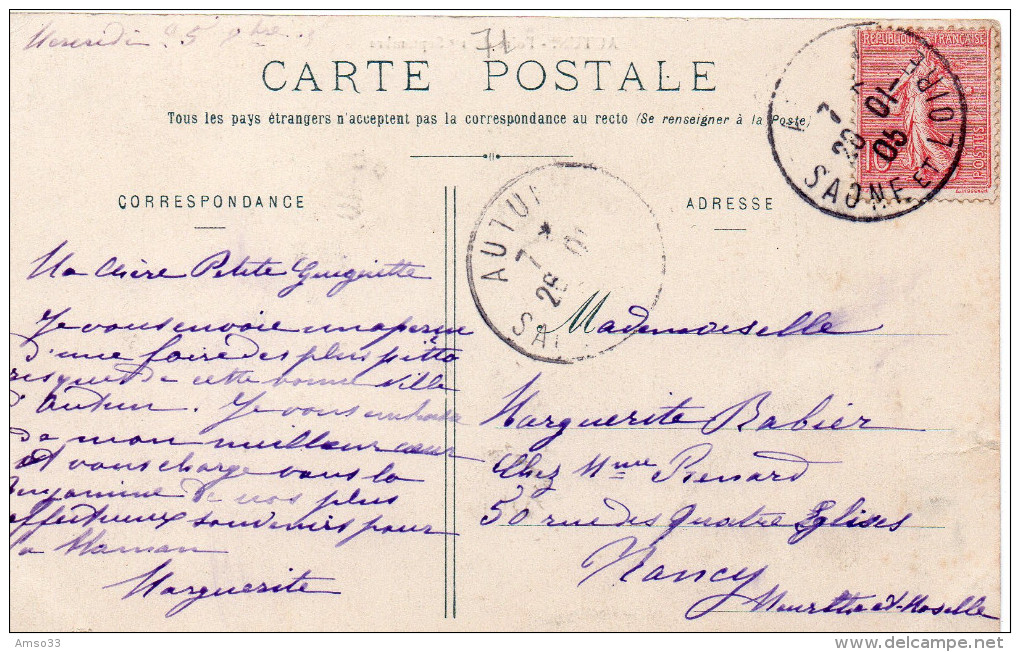 Mercredi
71
CARTE POSTALE
Tous les pays étrangers n'acceptent pas la correspondance au recto (Se renseigner à la Poste)
REPUBLIQUE FRANÇAISE
POSTES
10
7
20 01
05
SAONE ET LOIRE
CORRESPONDANCE
Ma Chère Petite Guiguitte
Je vous envoie un aperçu
d'une foire des plus pitto
resques de cette bonne ville
d'Autun. Je vous embrasse
de mon meilleur cœur
et vous charge vous la
Benjamine de nos plus
affectueux souvenirs pour
la Maman
Marguerite
AUTUN
7
SA
ADRESSE
Mademoiselle
Marguerite Babier
Chez Mme Renard
50 rue des Quatre Eglises
Nancy
Meurthe et Moselle
Amso33
www.delcampe.net